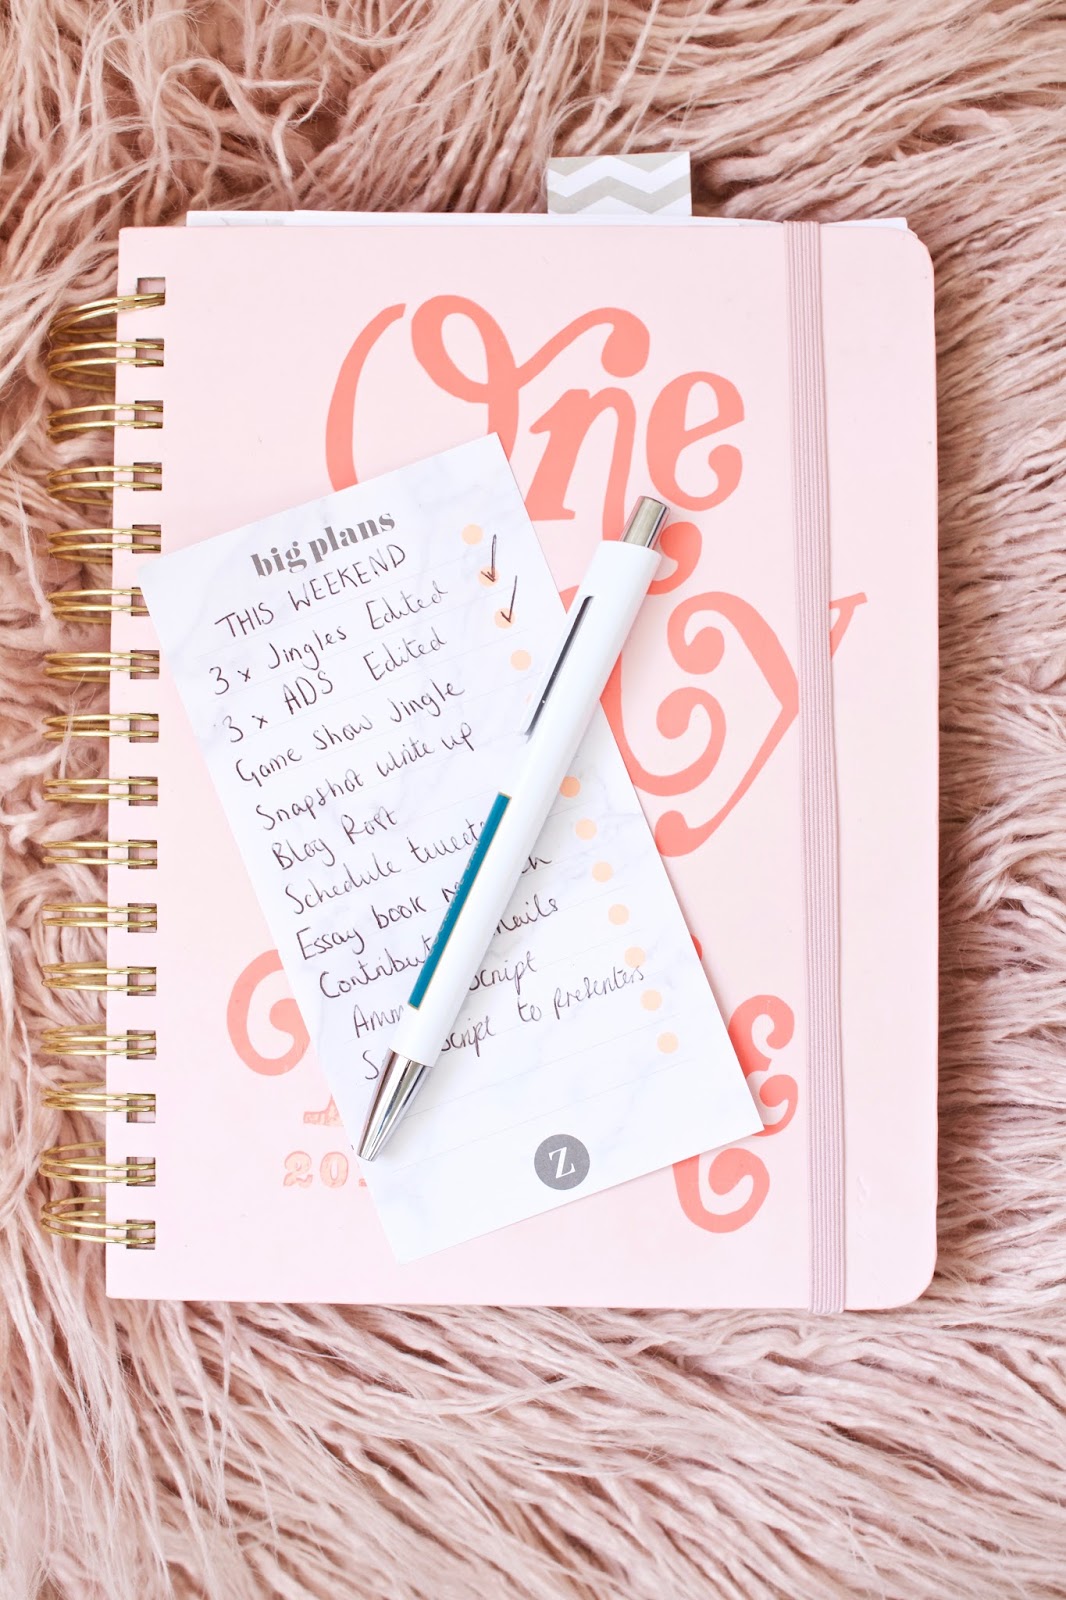 One
big plans
THIS WEEKEND
3 x Jingles Edited
3 x ADS Edited
Game Show Jingle
Snapshot write up
Blog Post
Schedule tweets
Essay book
Contribut mails
script
script to presenters
Z